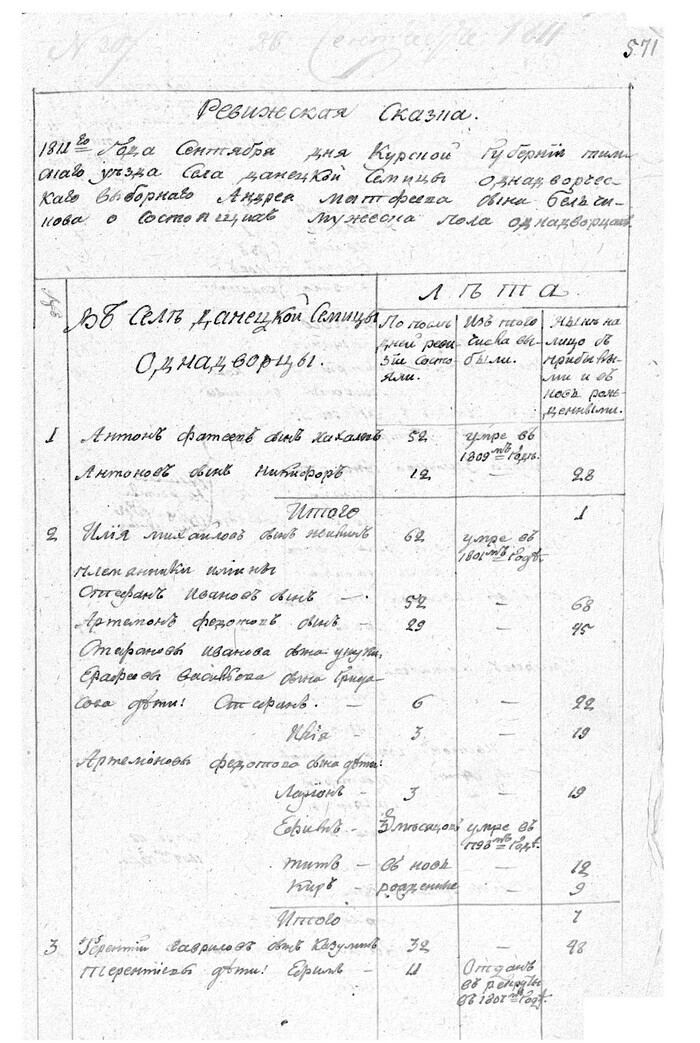 28 Сентября 1811
571
Ревижская Сказка.
1811го Года Сентября дня Курской Губернїи тим-
скаго уѣзда Села данецкой Семицы однадворчес-
каго выборнаго Андрея матфеева сына
о состоящихъ мужеска пола однадворцахъ
Въ Селѣ данецкой Семицы
Однадворцы.
Лѣта
По посль
дней реви
зїи состо
яли.
Изъ того
числа вы-
были.
Нынѣ на
лицо съ
прибывши-
ми и въ
новь рож-
денными.
1 Антонъ фатеевъ сынъ 52 умре въ
1809мъ Годѣ.
Антоновъ сынъ Никифоръ 12 — 28
Итого 1
2 Илїя михайловъ сынъ 62 умре въ
1801мъ Годѣ.
племянники
Стефанъ Ивановъ сынъ — 52 — 68
Артемонъ федотовъ сынъ — 29 — 45
Стефановы Иванова сына
сына
дѣти: Стефанъ. — 6 — 22
Илїя — 3 — 19
Артемоновы федотова сына дѣти:
Ларїонъ — 3 — 19
Ефимъ — мѣсяцовъ умре въ
Годѣ.
титъ — въ новь — 12
Киръ — рожденные 9
Итого 7
3 Терентїй Гавриловъ сынъ 32 — 48
Терентїевы дѣти: Ефимъ — 11 Отданъ
въ рекруты
въ 1807мъ Годѣ.